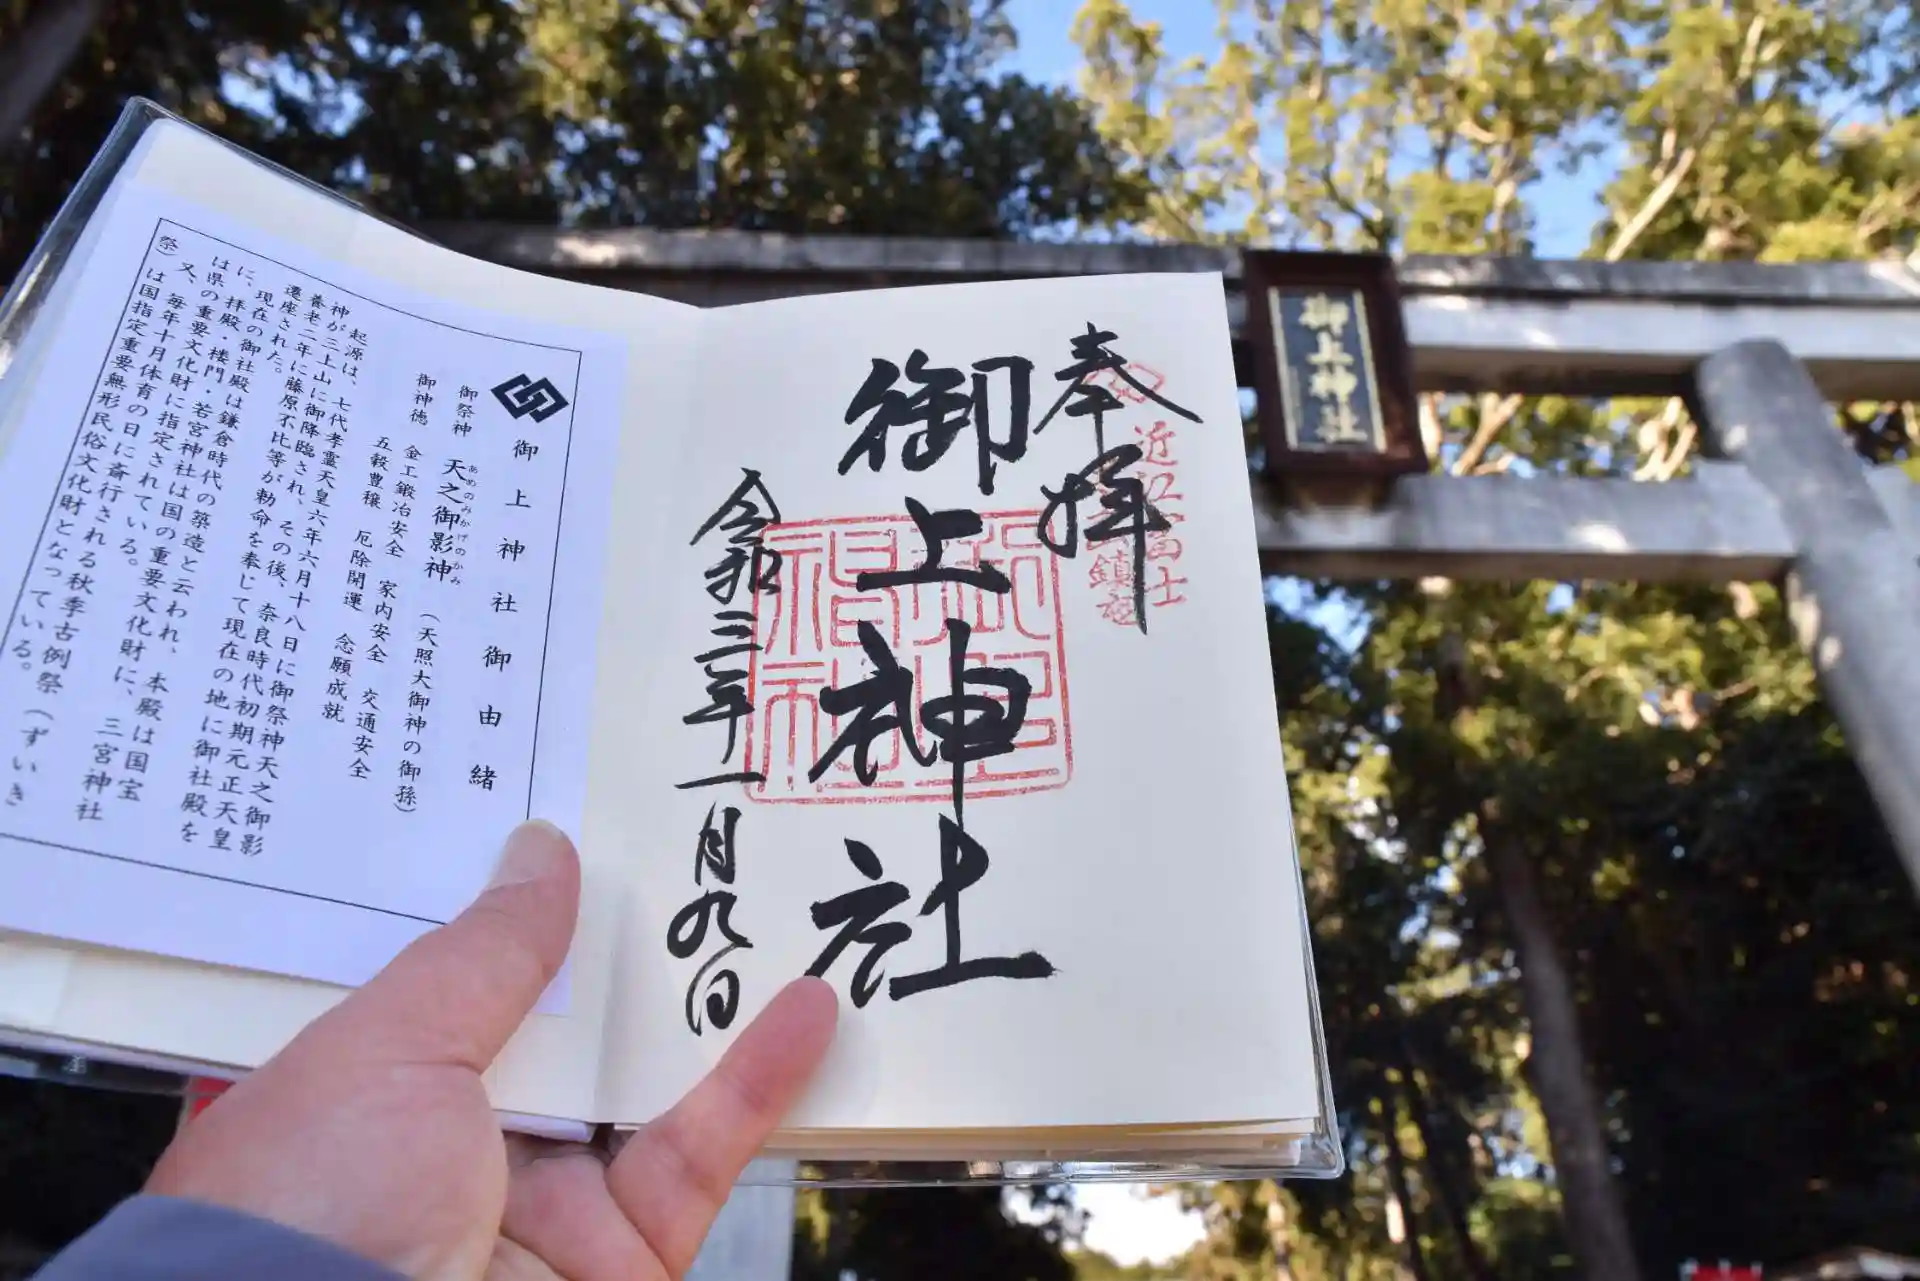 奉拝
近江富士
鎮
御上神社
令和三年十一月九日
御上神社御由緒
御祭神 天之御影神(天照大御神の御孫)
あめのみかげのかみ
御神徳 金工鍛冶安全 家内安全 交通安全
五穀豊穣 厄除開運 念願成就
起源は、七代孝霊天皇六年六月十八日に御祭神天之御影
神が三上山に御降臨され、その後、奈良時代初期元正天皇
養老二年に藤原不比等が勅命を奉じて現在の地に御社殿を
遷座された。
現在の御社殿は鎌倉時代の築造と云われ、本殿は国宝
に、拝殿・楼門・若宮神社は国の重要文化財に、三宮神社
は県の重要文化財に指定されている。
又、毎年十月体育の日に斎行される秋季古例祭(ずいき
祭)は国指定重要無形民俗文化財となっている。
御上神社